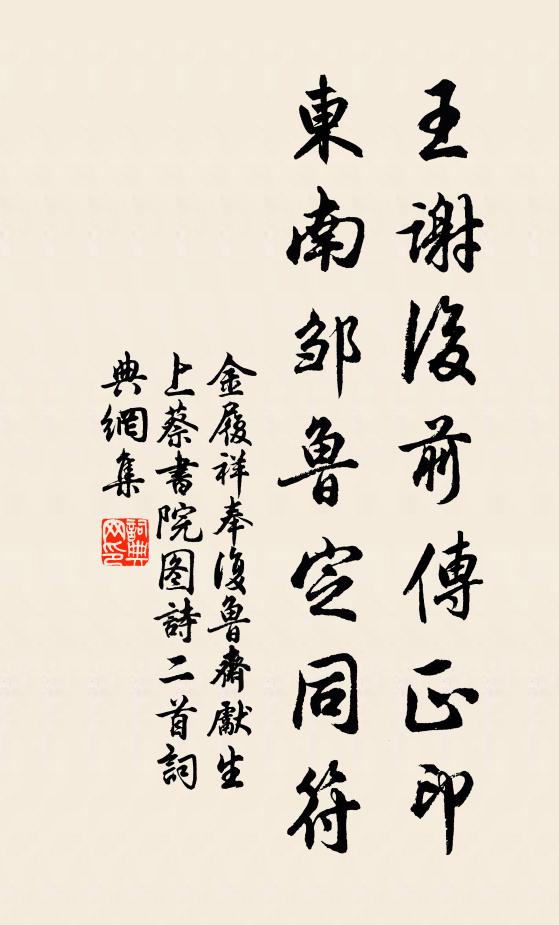 王謝後前傳正印
東南鄒魯定同符
金履祥奉復魯齋獻生
上蔡書院图詩二首詞
典網集
詞典網印